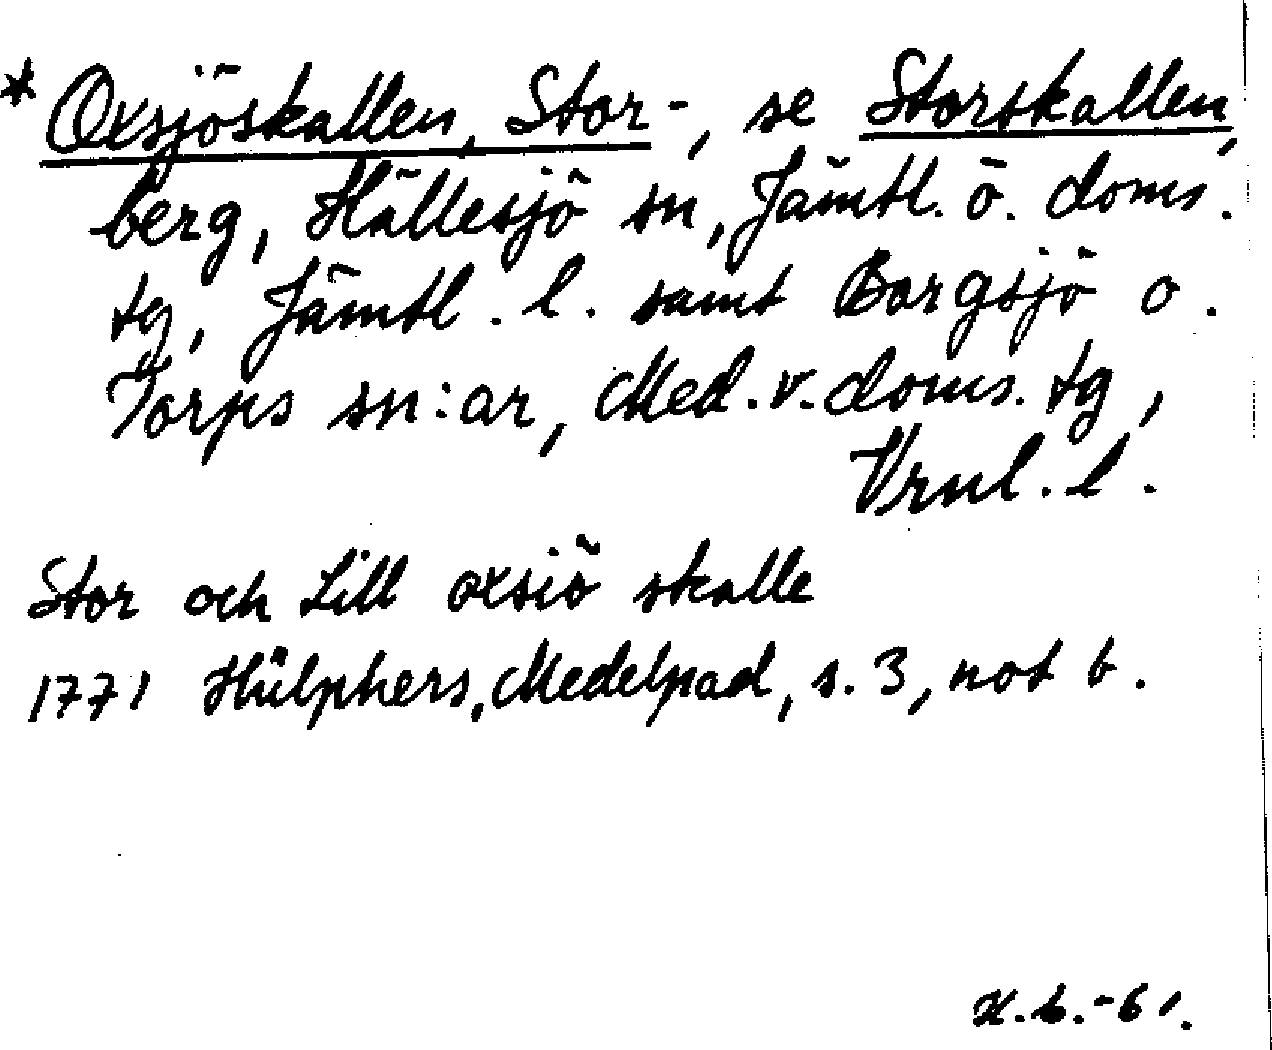 * Oxsjöskallen, Stor-, se Storskallen,
berg, Hällesjö sn, Jämtl. ö. doms.
tg, Jämtl. l. samt Borgsjö o.
Torps sn:ar, Med. v. doms. tg,
Vrnl. l.
Stor och Lill oxsiö skalle
1771 Hülphers, Medelpad, s. 3, not b.
H.b.-61.